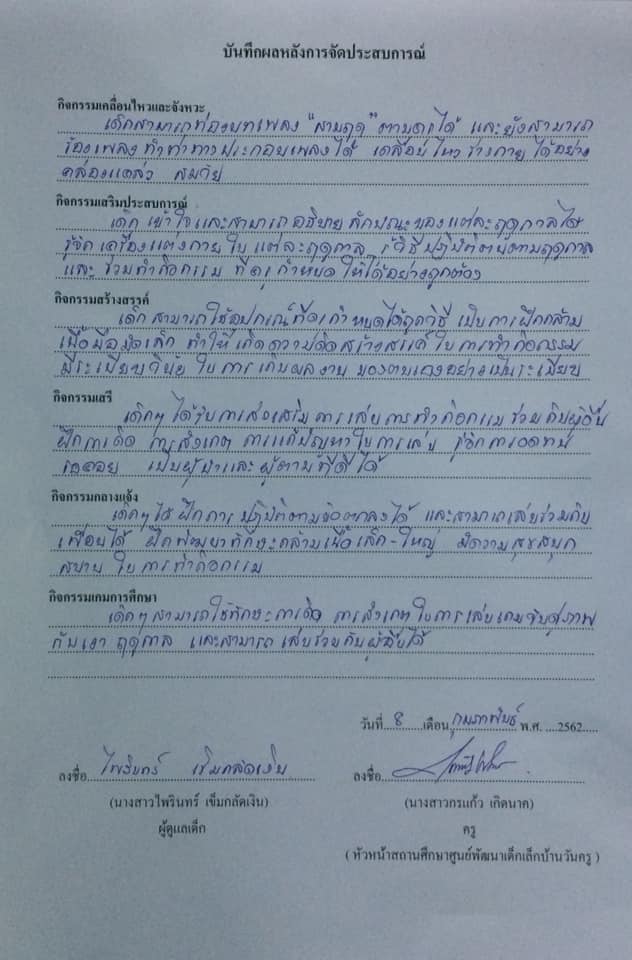 บันทึกผลหลังการจัดประสบการณ์
กิจกรรมเคลื่อนไหวและจังหวะ
เด็กสามารถท่องบทเพลง "สามฤดู" ตามครูได้ และยังสามารถ
ร้องเพลง ทำท่าทางประกอบเพลงได้ เคลื่อนไหวร่างกายได้อย่าง
คล่องแคล่ว สมวัย
กิจกรรมเสริมประสบการณ์
เด็กๆ เข้าใจและสามารถอธิบายลักษณะของแต่ละฤดูกาลได้
รู้จักเครื่องแต่งกายในแต่ละฤดูกาล รู้วิธีปฏิบัติตนตามฤดูกาล
และร่วมทำกิจกรรม ที่ครูกำหนดให้ได้อย่างถูกต้อง
กิจกรรมสร้างสรรค์
เด็กๆ สามารถใช้อุปกรณ์ที่ครูกำหนดได้ถูกวิธี เป็นการฝึกกล้าม
เนื้อมือมัดเล็ก ทำให้เกิดความคิดสร้างสรรค์ในการทำกิจกรรม
มีระเบียบวินัย ในการเก็บผลงาน ของตนเองอย่างเป็นระเบียบ
กิจกรรมเสรี
เด็กๆ ได้รับการส่งเสริมการเล่น การทำกิจกรรมร่วมกับผู้อื่น
ฝึกการคิด การสังเกต การแก้ปัญหาในการเล่น รู้จักการอดทน
รอคอย เป็นผู้นำและผู้ตามที่ดีได้
กิจกรรมกลางแจ้ง
เด็กๆ ได้ฝึกการปฏิบัติตามข้อตกลงได้ และสามารถเล่นร่วมกับ
เพื่อนได้ ฝึกพัฒนาทักษะกล้ามเนื้อเล็ก-ใหญ่ มีความสุขสนุก
สนาน ในการทำกิจกรรม
กิจกรรมเกมการศึกษา
เด็กๆ สามารถใช้ทักษะการคิด การสังเกต ในการเล่นเกมจับคู่ภาพ
กับเงา ฤดูกาล และสามารถเล่นร่วมกับผู้อื่นได้
วันที่ 8 เดือน กุมภาพันธ์ พ.ศ. 2562
ลงชื่อ ไพรินทร์ เข็มกลัดเงิน ลงชื่อ
(นางสาวไพรินทร์ เข็มกลัดเงิน) (นางสาวกรแก้ว เกิดนาค)
ผู้ดูแลเด็ก ครู
( หัวหน้าสถานศึกษาศูนย์พัฒนาเด็กเล็กบ้านวันครู )